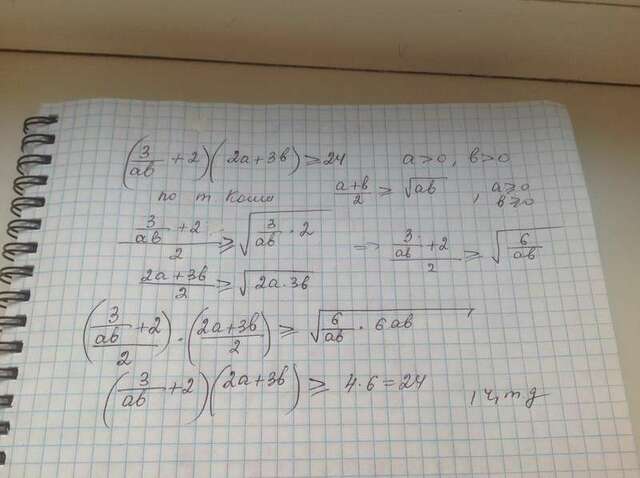 (3/ab + 2)(2a+3b) ≥ 24 a>0, b>0
по т. Коши (a+b)/2 ≥ √(ab), a≥0 b≥0
(3/ab + 2)/2 ≥ √(3/ab · 2) => (3/ab + 2)/2 ≥ √(6/ab)
(2a+3b)/2 ≥ √(2a·3b)
((3/ab + 2)/2) · ((2a+3b)/2) ≥ √(6/ab · 6ab)
(3/ab + 2)(2a+3b) ≥ 4·6=24, ч,т д